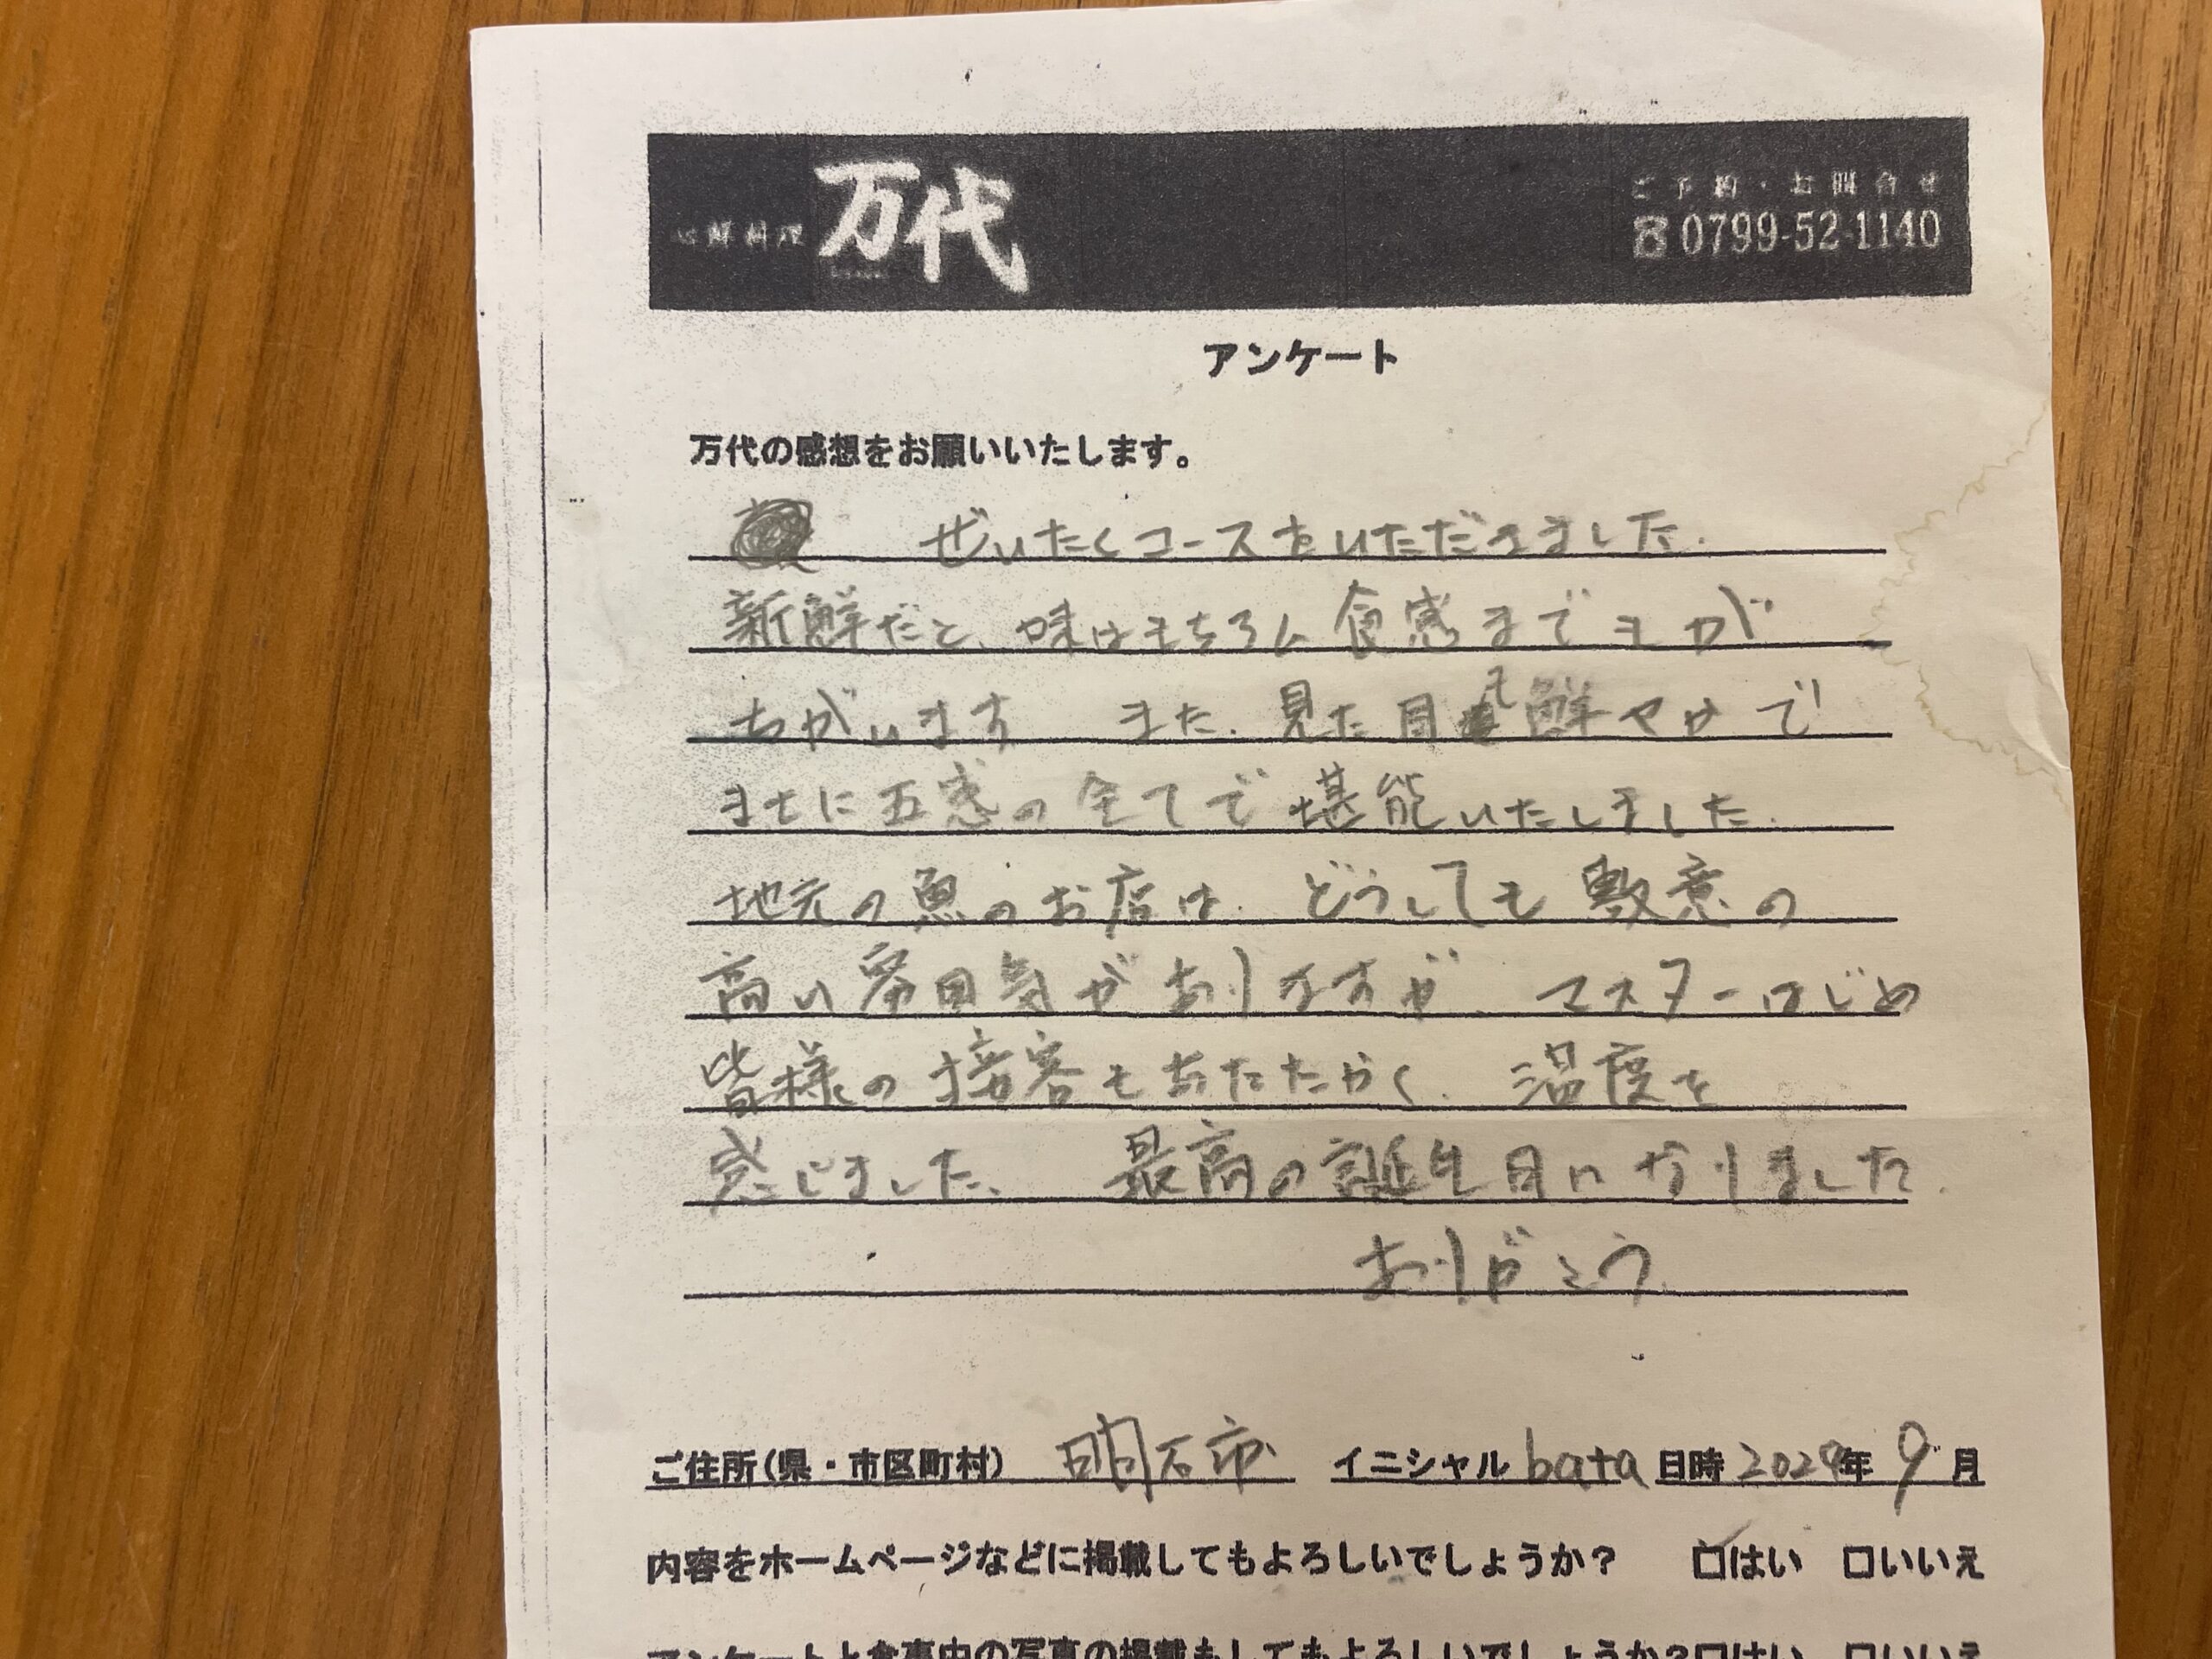 心鮮料理 万代
ご予約・お問合せ
☎0799-52-1140
アンケート
万代の感想をお願いいたします。
ぜいたくコースをいただきました.
新鮮だと、味はもちろん食感までもが
ちがいます また、見た目も鮮やかで
まさに五感の全てで堪能いたしました.
地元の魚のお店は、どうしても敷意の
高い雰囲気がありますが、マスターはじめ
皆様の接客もあたたかく、温度を
感じました、最高の誕生日になりました.
ありがとう
ご住所(県・市区町村) 明石市 イニシャル bata 日時 2024年 9月
内容をホームページなどに掲載してもよろしいでしょうか? ☑はい □いいえ
アンケートと食事中の写真の掲載もしてもよろしいでしょうか?□はい □いいえ